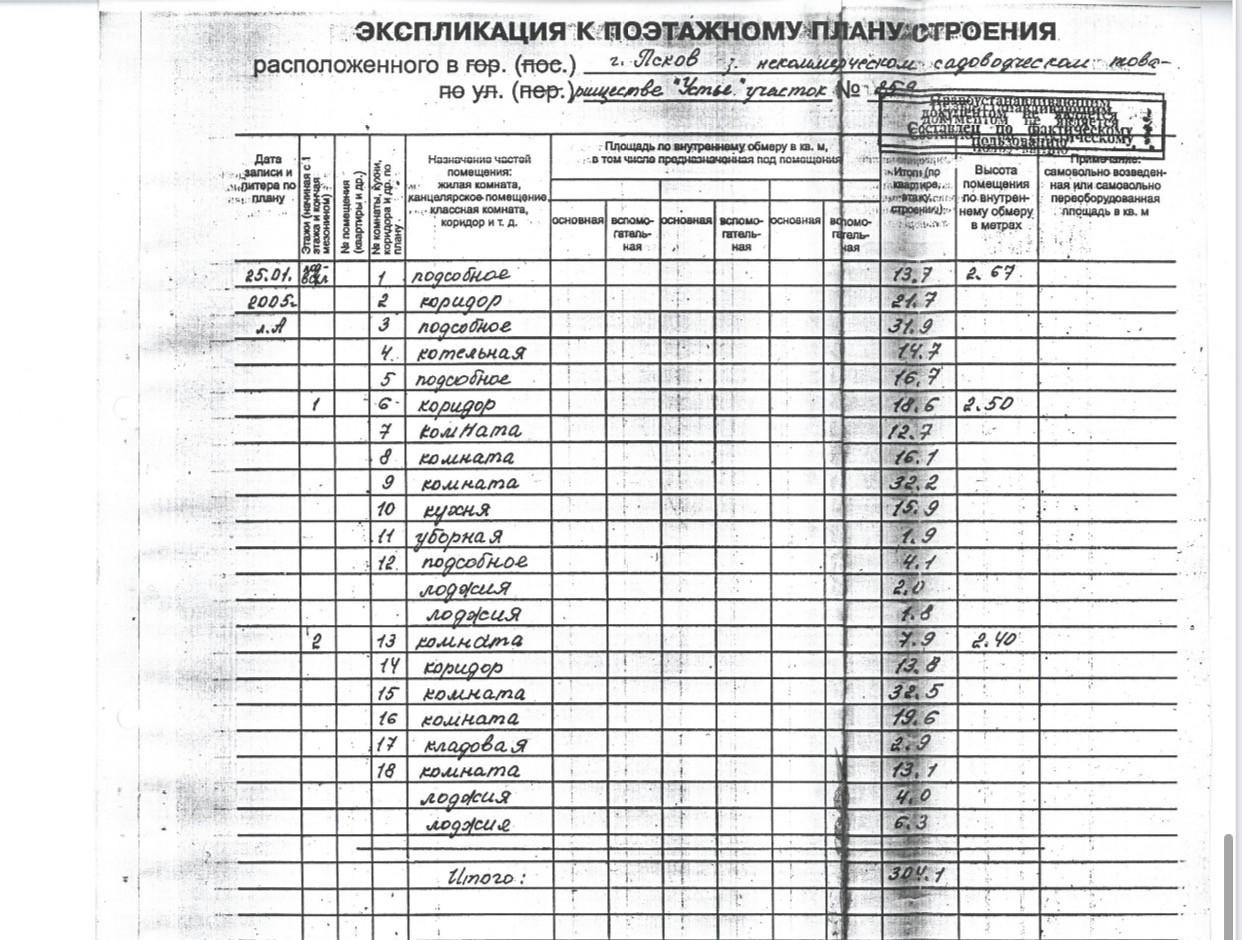 ЭКСПЛИКАЦИЯ К ПОЭТАЖНОМУ ПЛАНУ СТРОЕНИЯ
расположенного в гор. (пос.) г. Псков з. некоммерческом садоводческом това-
по ул. (пер.) риществе "Устье" участок №
Правоустанавливающим
документом не является
Составлен по фактическому
пользованию
Дата записи и литера по плану
Этажи (начиная с 1 этажа и кончая мезонином)
№ помещения (квартиры и др.)
№ комнаты, кухни, коридора и др. по плану
Назначение частей помещения: жилая комната, канцелярское помещение, классная комната, коридор и т. д.
Площадь по внутреннему обмеру в кв. м,
в том числе предназначенная под помещения
основная вспомогательная основная вспомогательная основная вспомогательная
Итого (по квартире, этажу, строению)
Высота помещения по внутреннему обмеру в метрах
Примечание: самовольно возведенная или самовольно переоборудованная площадь в кв. м
25.01. 1 подсобное 13.7 2.67
2005г. 2 коридор 21.7
л.А 3 подсобное 31.9
4 котельная 14.7
5 подсобное 16.7
1 6 коридор 18.6 2.50
7 комната 12.7
8 комната 16.1
9 комната 32.2
10 кухня 15.9
11 уборная 1.9
12 подсобное 4.1
лоджия 2.0
лоджия 1.8
2 13 комната 7.9 2.40
14 коридор 13.8
15 комната 32.5
16 комната 19.6
17 кладовая 2.9
18 комната 13.1
лоджия 4.0
лоджия 6.3
Итого: 304.1